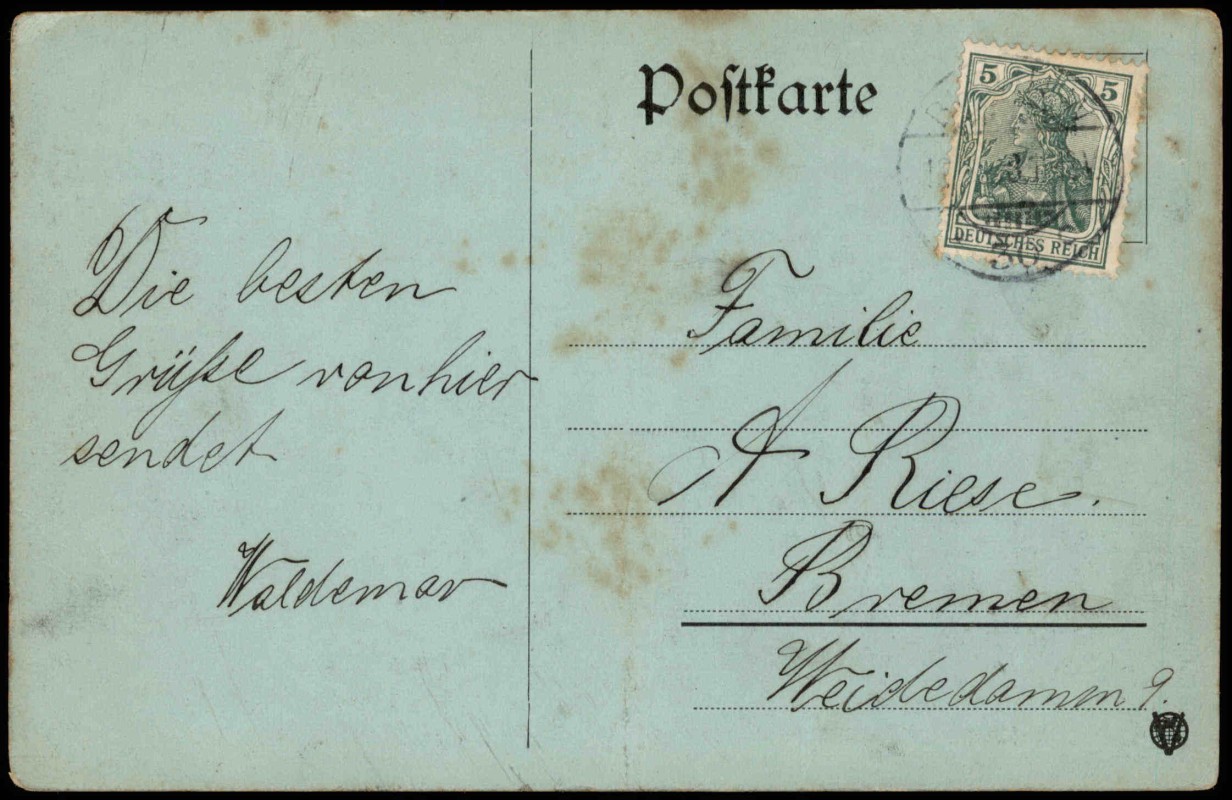 Postkarte
5 5
DEUTSCHES REICH
30
Die besten
Grüße von hier
sendet
Waldemar
Familie
A Riese.
Bremen
Weidedamm 9.